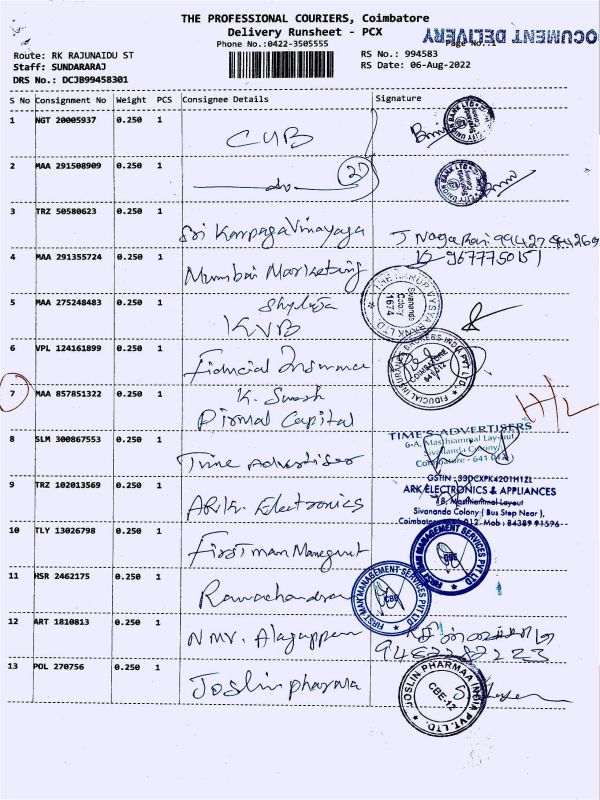 THE PROFESSIONAL COURIERS, Coimbatore
Delivery Runsheet - PCX
DOCUMENT DELIVERY
Phone No.:0422-3505555
Page No.:1
Route: RK RAJUNAIDU ST
RS No.: 994583
Staff: SUNDARARAJ
RS Date: 06-Aug-2022
DRS No.: DCJB99458301
S No Consignment No Weight PCS Consignee Details Signature
1 NGT 20005937 0.250 1 CUB
CITY UNION BANK LTD
2 MAA 291508909 0.250 1 do 27
CITY UNION BANK LTD
3 TRZ 50580623 0.250 1 Sri Karpaga Vinayaga
4 MAA 291355724 0.250 1 Mumbai Marketing
9677750151
5 MAA 275248483 0.250 1 Shylaja
KVB
THE KARUR VYSYA BANK LTD
Sivananda Colony 1674
6 VPL 124161899 0.250 1 Fiducial Insurance
FIDUCIAL INSURANCE BROKERS INDIA PVT LTD.
COIMBATORE 641 012
7 MAA 857851322 0.250 1 K. Suresh
Pirmal Capital
H/L
8 SLM 300867553 0.250 1 Time advertiser
TIME'S ADVERTISERS
6-A, Masthiammal Lay-out
Sivananda Colony
Coimbatore - 641 012
9 TRZ 102013569 0.250 1 ARK. Electronics
GSTIN : 33DCXPK4201H1ZL
ARK ELECTRONICS & APPLIANCES
Masthiammal Layout
Sivananda Colony ( Bus Step Near ),
Coimbatore 012. Mob : 84389 91596
10 TLY 13026798 0.250 1 First man Manegment
FIRST MAN MANAGEMENT SERVICES PVT LTD
CBE
11 HSR 2462175 0.250 1 Ramachandran
FIRST MAN MANAGEMENT SERVICES PVT LTD
CBE
12 ART 1810813 0.250 1 NMV. Alagappan
13 POL 270756 0.250 1 Joslin pharma
JOSLIN PHARMAA INDIA PVT. LTD.
CBE-12